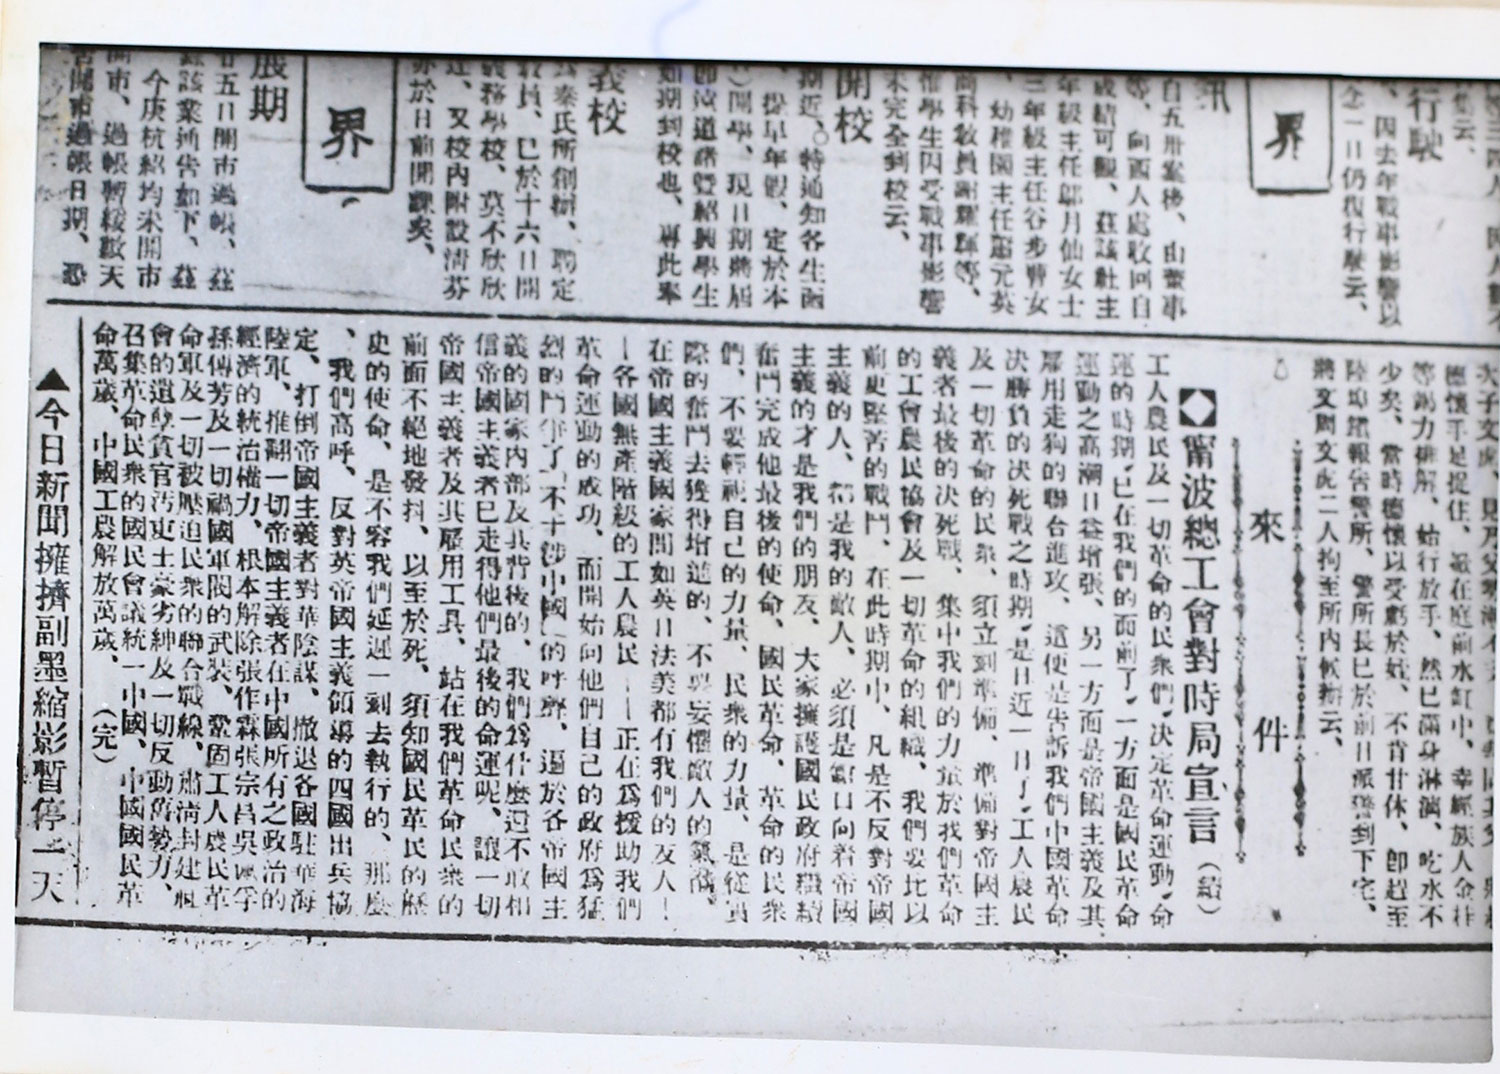 行駛
、因去年戰事影響以
念一日仍復行駛云、
界
訊
自五卅案後、由董事
等、向西人處收回自
成績可觀、茲該社主
年級主任鄔月仙女士
三年級主任谷步曹女
、幼稚園主任
商科教員謝耀輝等、
惟學生因受戰事影響
未完全到校云、
開校
期近、特通知各生函
、提早年假、定於本
開學、現日期將屆
節、道諸暨紹興學生
如期到校也、專此奉
義校
為秦氏所創辦、聘定
教員、已於十六日開
義務學校、莫不欣欣
、又校內附設清芬
亦於日前開課矣、
界
展期
五日開市過帳、茲
該業通告如下、茲
今庚杭紹均未開市
開市、過帳暫緩數天
開市過帳日期、恐
應懷手足捉住、
等竭力排解、始行放手、然已滿身淋漓、吃水不
少矣、當時德懷以受虧於姪、不肯甘休、卽趕至
陸埠報告警所、警所長已於前日派警到下宅、
將文周文虎二人拘至所內候辦云、
來件
◆甯波總工會對時局宣言(續)
工人農民及一切革命的民衆們、决定革命運動、命
運的時期、已在我們的面前了、一方面是國民革命
運動之高潮日益增張、另一方面是帝國主義及其
雇用走狗的聯合進攻、這便是告訴我們中國革命
决勝負的决死戰之時期、是日近一日了、工人農民
及一切革命的民衆、須立到準備、準備對帝國主
義者最後的决死戰、集中我們的力量於我們革命
的工會農民協會及一切革命的組織、我們要比以
前更堅苦的戰鬥、在此時期中、凡是不反對帝國
主義的人、都是我的敵人、必須是槍口向着帝國
主義的才是我們的朋友、大家擁護國民政府繼續
奮鬥完成他最後的使命、國民革命、革命的民衆
們、不要輕視自己的力量、民衆的力量、是從實
際的奮鬥去獲得增進的、不要妄懼敵人的氣燄、
在帝國主義國家間如英日法美都有我們的友人—
—各國無產階級的工人農民——正在爲援助我們
革命運動的成功、而開始向他們自己的政府爲猛
烈的鬥爭了、「不干涉中國」的呼聲、逼於各帝國主
義的國家內部及其背後的、我們爲什麽還不敢相
信帝國主義者已走得他們最後的命運呢、讓一切
帝國主義者及其雇用工具、站在我們革命民衆的
前面不絕地發抖、以至於死、須知國民革民的歷
史的使命、是不容我們延遲一刻去執行的、那麼
、我們高呼、反對英帝國主義領導的四國出兵協
定、打倒帝國主義者對華陰謀、撤退各國駐華海
陸軍、推翻一切帝國主義者在中國所有之政治的
經濟的統治權力、根本解除張作霖張宗昌吳佩孚
孫傳芳及一切禍國軍閥的武裝、鞏固工人農民革
命軍及一切被壓迫民衆的聯合戰線、肅清封建社
會的遺孽貪官汚吏土豪劣紳及一切反動舊勢力、
召集革命民衆的國民會議統一中國、中國國民革
命萬歲、中國工農解放萬歲、(完)
▲今日新聞擁擠副墨縮影暫停一天